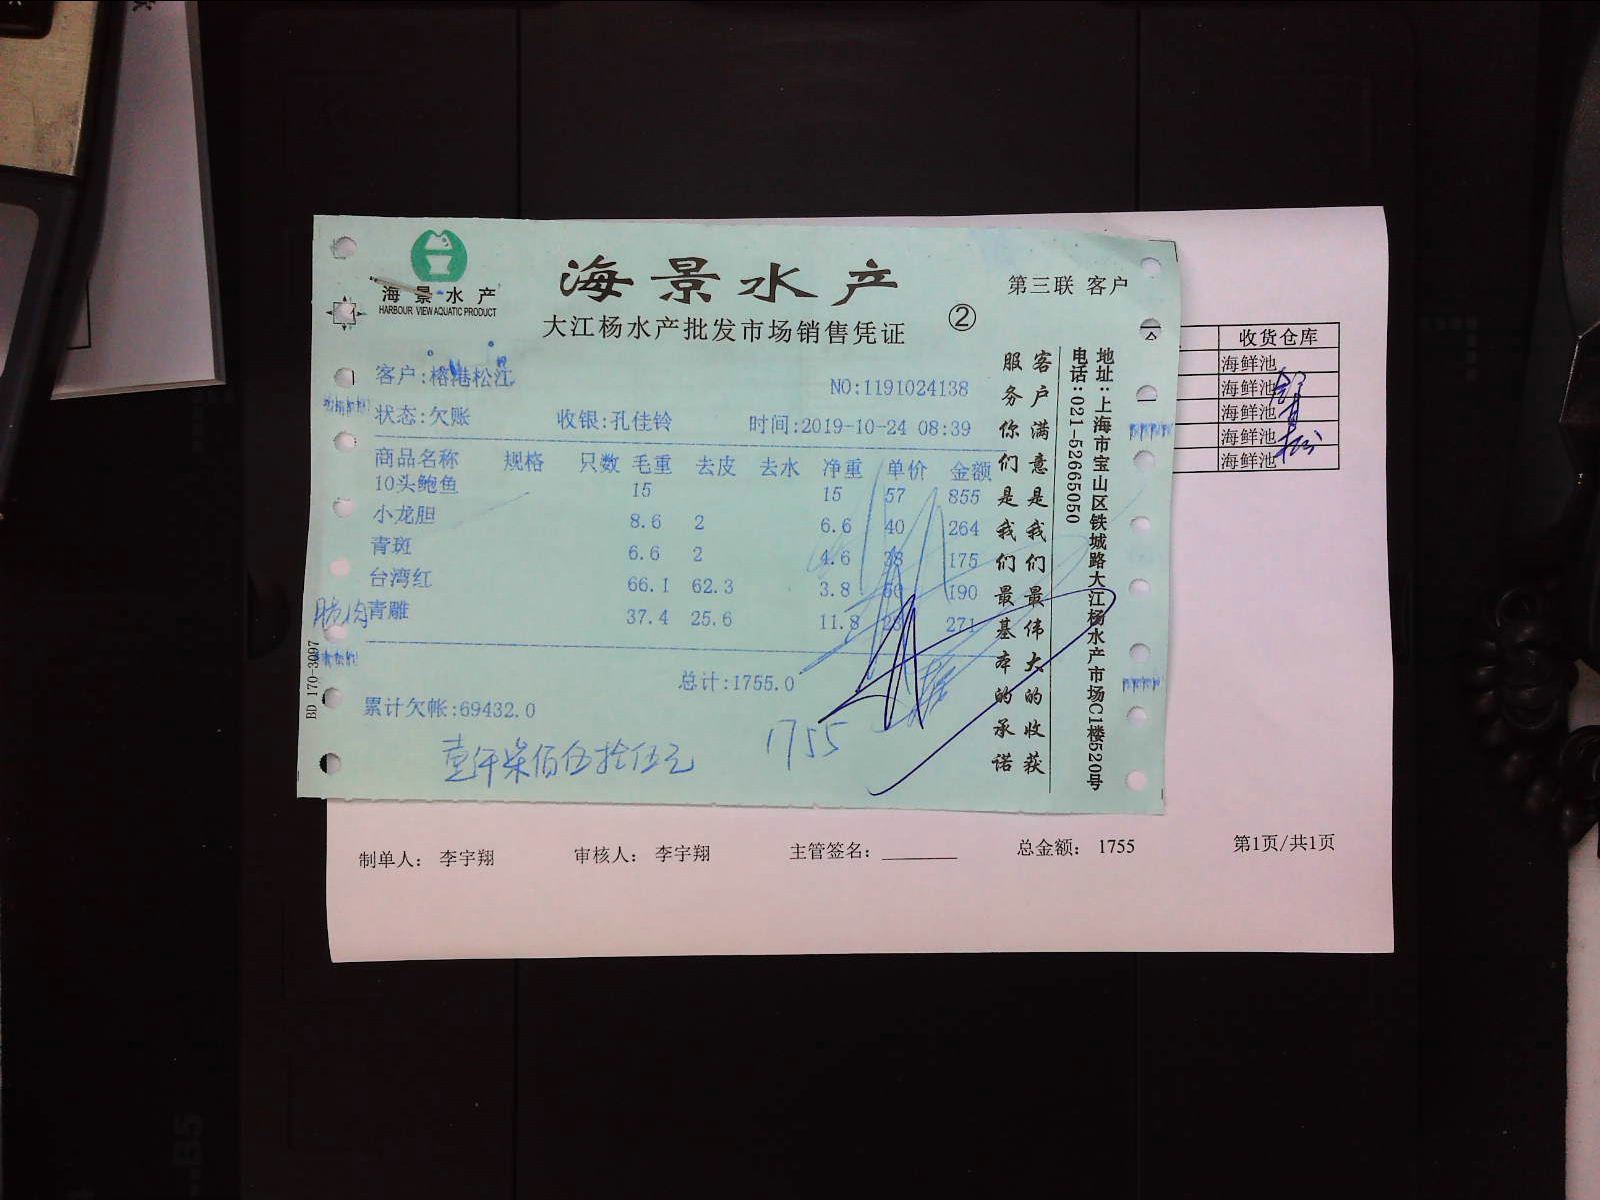 海景水产
HARBOUR VIEW AQUATIC PRODUCT
海景水产
大江杨水产批发市场销售凭证
②
第三联 客户
客户:榕港松江
NO:1191024138
状态:欠账 收银:孔佳铃 时间:2019-10-24 08:39
商品名称 规格 只数 毛重 去皮 去水 净重 单价 金额
10头鲍鱼 15 15 57 855
小龙胆 8.6 2 6.6 40 264
青斑 6.6 2 4.6 38 175
台湾红 66.1 62.3 3.8 190
青雕 37.4 25.6 11.8 271
总计:1755.0
累计欠帐:69432.0
壹仟柒佰伍拾伍元
1755
客户满意是我们最伟大的收获
服务你们是我们最基本的承诺
地址:上海市宝山区铁城路大江杨水产市场C1楼520号
电话:021-52665050
BD 170-3097
收货仓库
海鲜池
海鲜池
海鲜池
海鲜池
海鲜池
制单人: 李宇翔 审核人: 李宇翔 主管签名: 总金额: 1755 第1页/共1页
B5